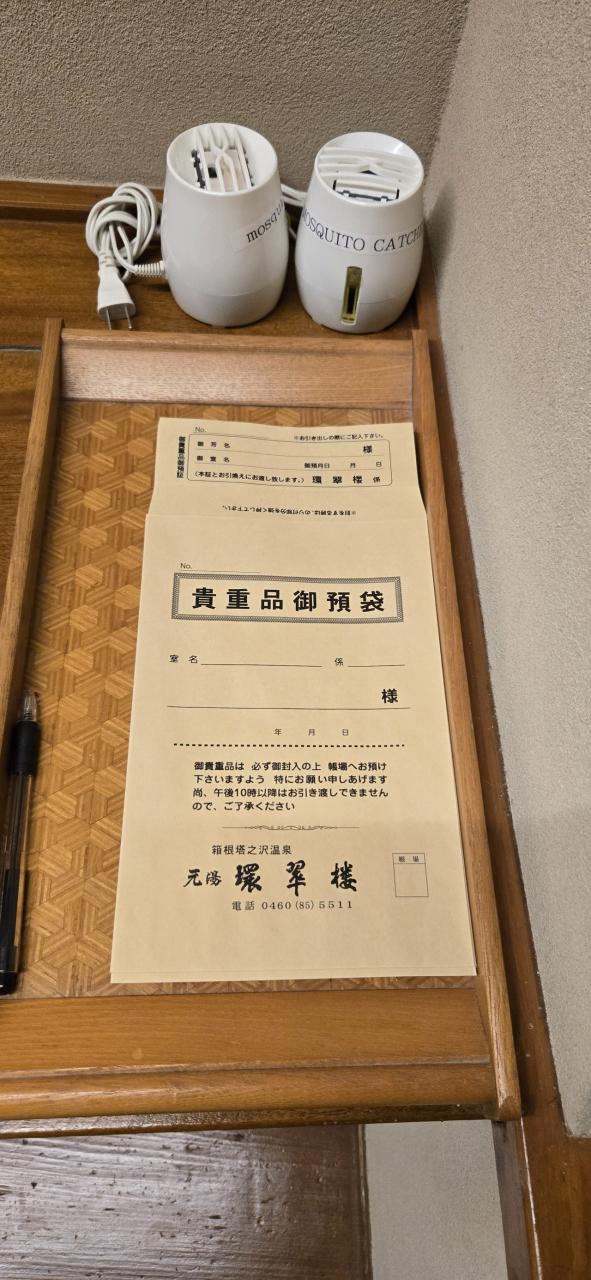 mosqu
MOSQUITO CATCH
No.
※お引き出しの際にご記入下さい。
御貴重品御預証
御芳名 様
御室名 御預月日 月 日
(本証とお引換えにお渡し致します。) 環翠楼 係
※封をする時は、のり付部分を強く押して下さい。
No.
貴重品御預袋
室名 係
様
年 月 日
御貴重品は 必ず御封入の上 帳場へお預け
下さいますよう 特にお願い申しあげます
尚、午後10時以降はお引き渡しできません
ので、ご了承ください
箱根塔之沢温泉
元湯 環翠楼
帳場
電話 0460(85)5511